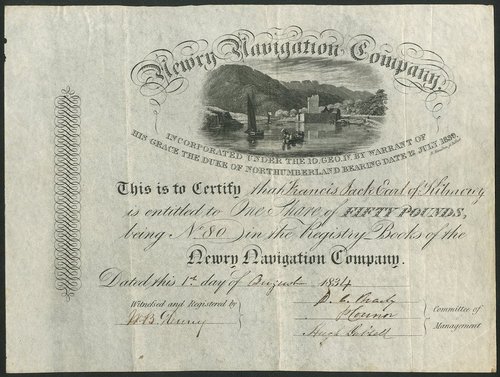 Newry Navigation Company.
INCORPORATED UNDER THE 10, GEO. IV. BY WARRANT OF
HIS GRACE THE DUKE OF NORTHUMBERLAND BEARING DATE 12 JULY 1830.
This is to Certify that Francis Jack Earl of Kilmorey
is entitled to One Share of FIFTY POUNDS,
being No. 80 in the Registry Books of the
Newry Navigation Company.
Dated this 1st day of August 1834
Witnessed and Registered by
Committee of
Management